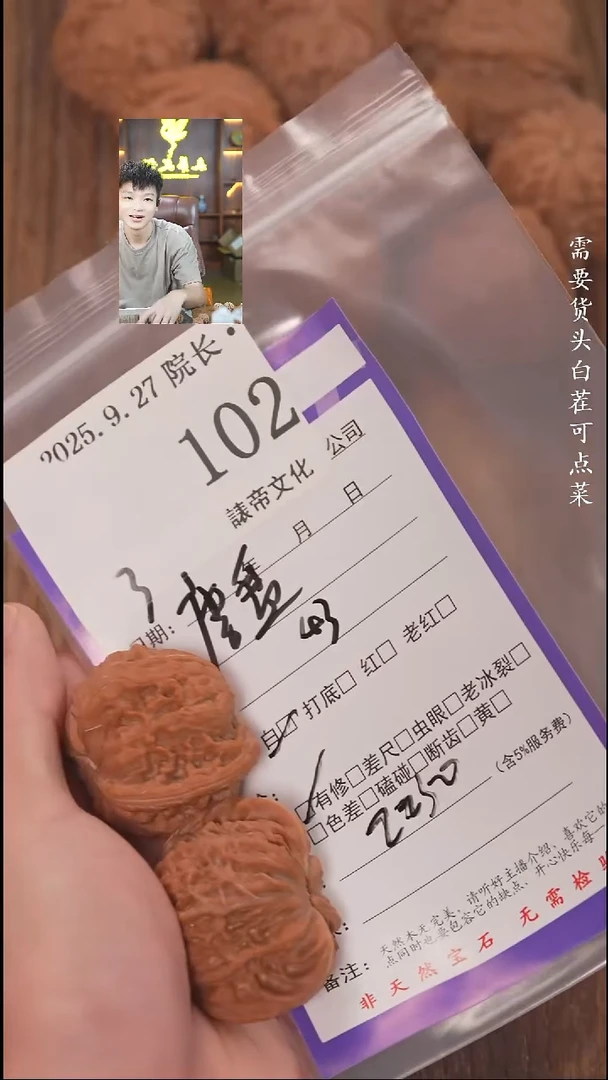 2025.9.27 院长
102
諘帝文化 公司
年 月 日
3
期:
43
白 打底 红 老红
有修 差尺 虫眼 老冰裂
色差 磕碰 断齿 黄
2250
(含5%服务费)
备注:
天然木无完美,请听好主播介绍,喜欢它的
点同时也要包容它的缺点,开心快乐每一
非天然宝石 无需检
需要货头白茬可点菜